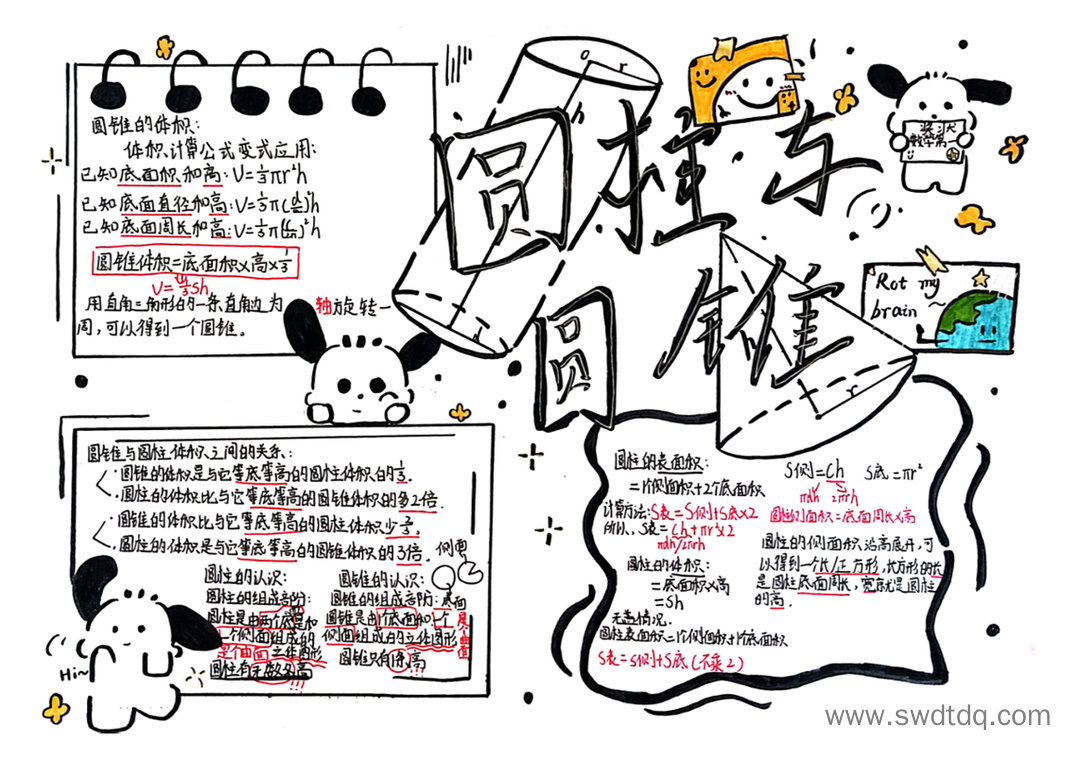 圆柱与
圆锥
圆锥的体积:
体积计算公式变式应用:
已知底面积和高:V=⅓πr²h
已知底面直径和高:V=⅓π(d/2)²h
已知底面周长和高:V=⅓π(c/2π)²h
圆锥体积=底面积×高×⅓
V=⅓sh
用直角三角形的一条直角边为轴方旋转一
周,可以得到一个圆锥。
o r
h
r
奖状
数学第一
Rot my
brain~
r
圆锥与圆柱体积之间的关系:
·圆锥的体积是与它等底等高的圆柱体积的⅓.
·圆柱的体积比与它等底等高的圆锥体积的多2倍.
·圆锥的体积比与它等底等高的圆柱体积少⅔.
·圆柱的体积是与它等底等高的圆锥体积的3倍.
圆柱的认识:
圆柱的组成部份:
圆柱是由两个底面和
一个侧面组成的
是个曲面 立体图形
圆柱有无数条高
!!!
圆锥的认识:
圆锥的组成部份:
圆锥是由1个底面和一个
侧面组成的立体图形
圆锥只有1条高
!!!
侧面
底面
是个曲面
Hi~
圆柱的表面积:
=1个侧面积+2个底面积
计算方法:S表=S侧+S底×2
所以、S表=Ch+πr²×2
πdh/2πrh
圆柱的体积:
=底面积×高
=Sh
无盖情况.
圆柱表面积=1个侧面积+1个底面积
S表=S侧+S底(不乘2)
S侧=Ch S底=πr²
πdh 2πrh
圆柱侧面积=底面周长×高
圆柱的侧面积沿高展开,可
以得到一个长/正方形,长方形的长
是圆柱底面周长,宽就是圆柱
的高.
www.swdtdq.com